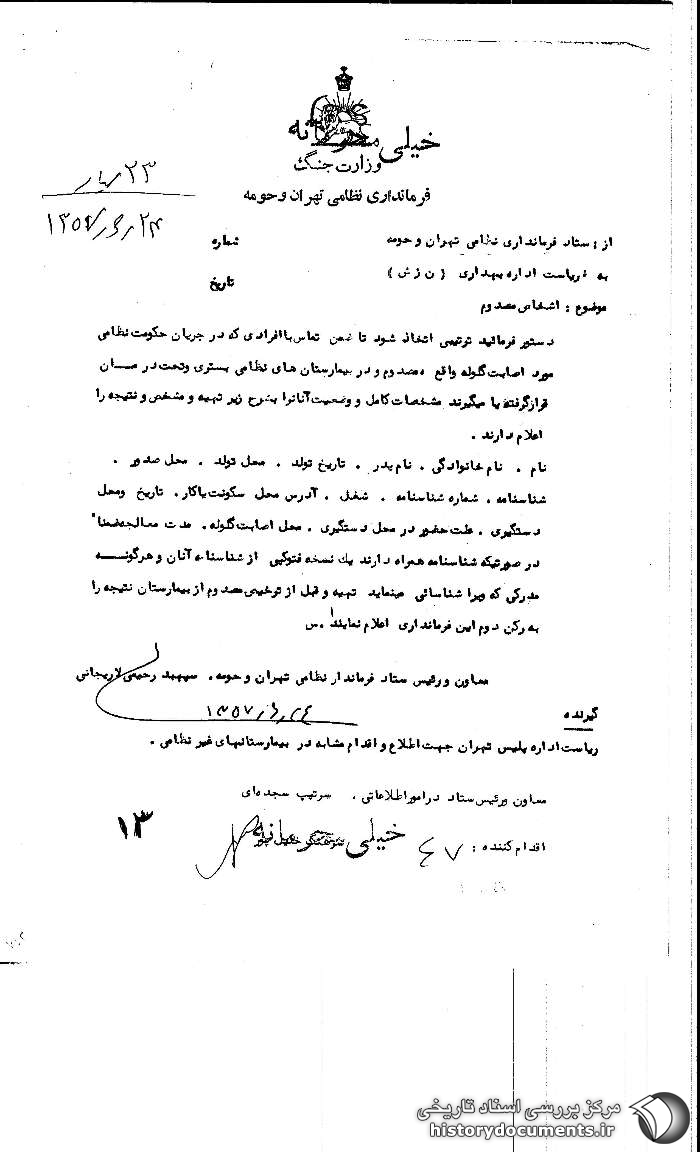 خیلی محرمانه
وزارت جنگ
فرمانداری نظامی تهران و حومه
۲۳
۱۳۵۷/۶/۲۴
از : ستاد فرمانداری نظامی تهران و حومه
شماره
به : ریاست اداره بهداری ( ن ز ش )
تاریخ
موضوع : اشخاص مصدوم
دستور فرمائید ترتیبی اتخاذ شود تا ضمن تماس با افرادی که در جریان حکومت نظامی
مورد اصابت گلوله واقع مصدوم و در بیمارستان های نظامی بستری و تحت درمان
قرار گرفته یا میگیرند مشخصات کامل و وضعیت آنانرا بشرح زیر تهیه و مشخص و نتیجه را
اعلام دارند .
نام . نام خانوادگی . نام پدر . تاریخ تولد . محل تولد . محل صدور .
شناسنامه . شماره شناسنامه . شغل . آدرس محل سکونت یا کار . تاریخ و محل
دستگیری . علت حضور در محل دستگیری . محل اصابت گلوله . مدت معالجه ضمنا"
در صورتیکه شناسنامه همراه دارند یك نسخه فتوکپی از شناسنامه آنان و هرگونه
مدرکی که ویرا شناسائی مینماید تهیه و قبل از ترخیص مصدوم از بیمارستان نتیجه را
به رکن دوم این فرمانداری اعلام نمایند . س
معاون و رئیس ستاد فرماندار نظامی تهران و حومه . سپهبد رحیمی لاریجانی
۱۳۵۷/۶/۲۴
گیرنده
ریاست اداره پلیس تهران جهت اطلاع و اقدام مشابه در بیمارستانهای غیر نظامی .
معاون و رئیس ستاد در امور اطلاعاتی . سرتیپ سجده ای
اقدام کننده :
خیلی محرمانه
۴۷
۱۳
مرکز بررسی اسناد تاریخی
historydocuments.ir